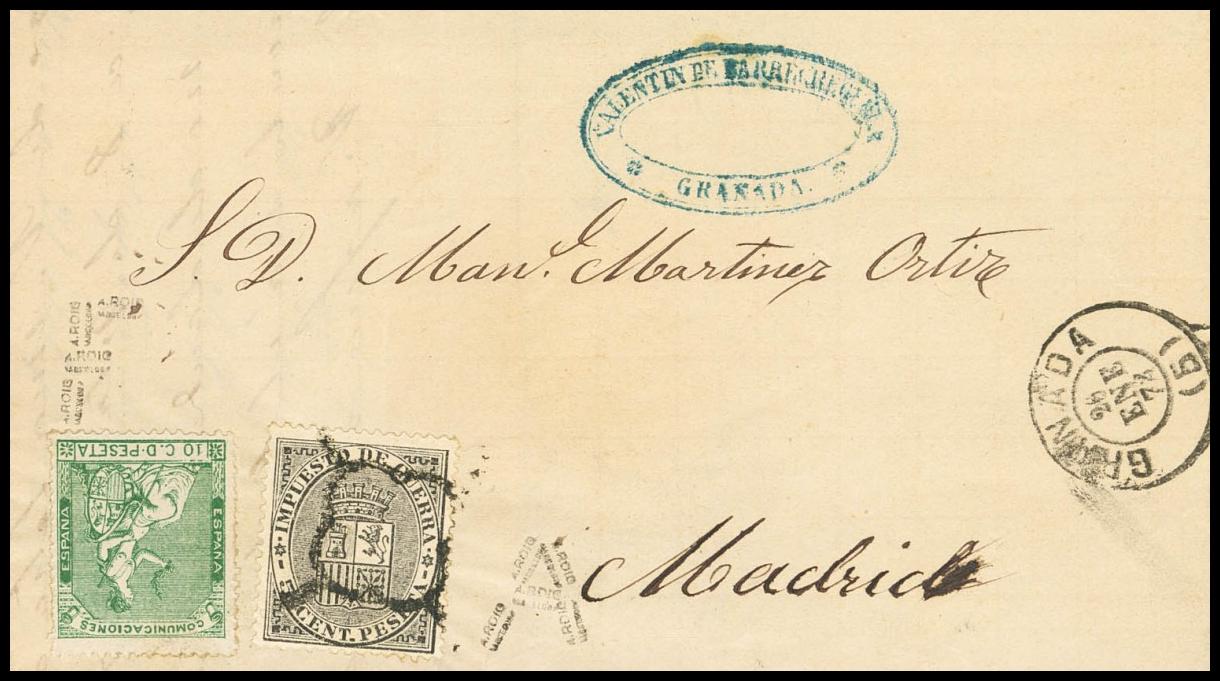 VALENTIN DE BARRECHEGUREN
GRANADA.
S. D. Man.l Martinez Ortiz
A.ROIG
A.ROIG
A.ROIG
A.ROIG
GRANADA (5)
26
ENE
74
10 C. D PESETA
ESPAÑA
ESPAÑA
COMUNICACIONES
IMPUESTO DE GUERRA
5 CENT. PESETA
Madrid
A.ROIG
A.ROIG
A.ROIG
A.ROIG
A.ROIG